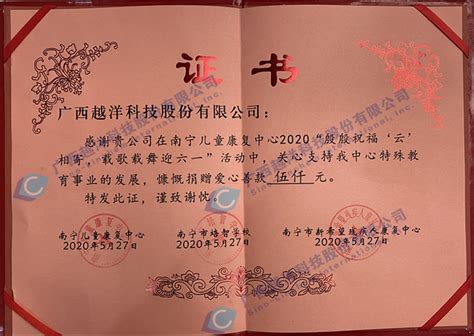 证书
广西越洋科技股份有限公司：
感谢贵公司在南宁儿童康复中心2020“殷殷祝福‘云’
相寄，载歌载舞迎六一”活动中，关心支持我中心特殊教
育事业的发展，慷慨捐赠爱心善款 伍仟元。
特发此证，谨致谢忱。
南宁儿童康复中心 南宁市培智学校 南宁市新希望残疾人康复中心
2020年5月27日 2020年5月27日 2020年5月27日
广西越洋科技股份有限公司